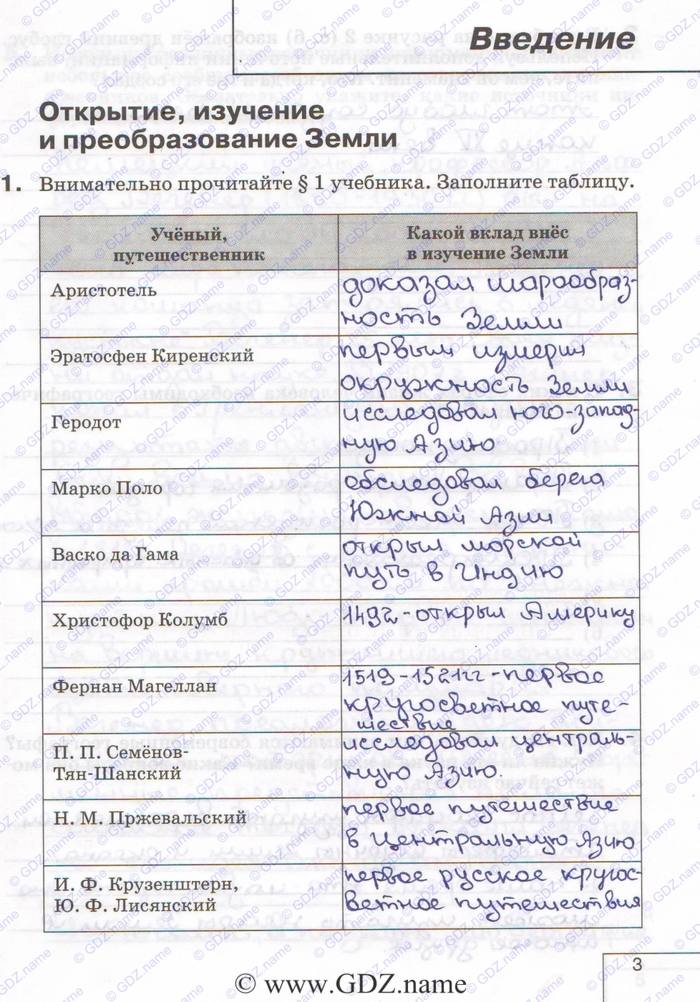 Введение
Открытие, изучение
и преобразование Земли
1. Внимательно прочитайте § 1 учебника. Заполните таблицу.
Учёный,
путешественник
Какой вклад внёс
в изучение Земли
Аристотель
доказал шарообраз-
ность Земли
Эратосфен Киренский
первым измерил
окружность Земли
Геродот
исследовал юго-запад-
ную Азию
Марко Поло
обследовал берега
Южной Азии
Васко да Гама
открыл морской
путь в Индию
Христофор Колумб
1492-открыл Америку
Фернан Магеллан
1519-1521гг-первое
кругосветное путе-
шествие
П. П. Семёнов-
Тян-Шанский
исследовал централь-
ную Азию.
Н. М. Пржевальский
первое путешествие
в Центральную Азию
И. Ф. Крузенштерн,
Ю. Ф. Лисянский
первое русское кругос-
ветное путешествия
3
© www.GDZ.name